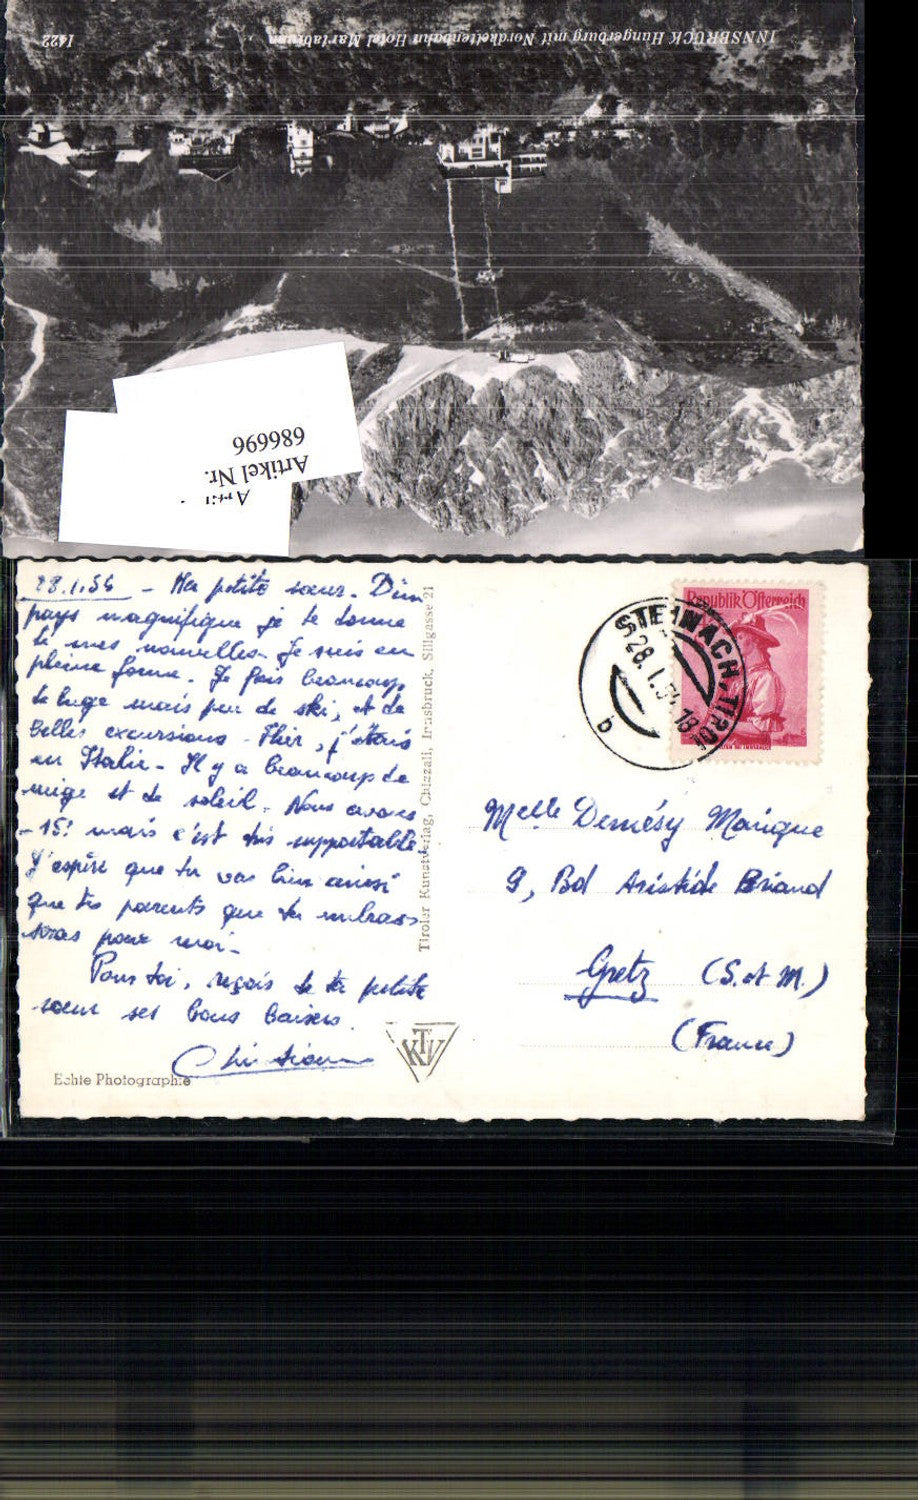 INNSBRUCK Hungerburg mit Nordkettenbahn Hotel Mariabrunn
1422
Artikel Nr.
686696
28.1.56 - Ma petite soeur. D'un
pays magnifique je te donne
de mes nouvelles. Je suis en
pleine forme. Je fais beaucoup
de luge mais peu de ski, et de
belles excursions. Hier, j'étais
en Italie. Il y a beaucoup de
neige et de soleil. Nous avons
-15° mais c'est très supportable
J'espère que tu vas bien ainsi
que tes parents que tu embras-
seras pour moi.
Pour toi, reçois de ta petite
soeur ses bons baisers.
Christiane
Echte Photographie
KTV
Tiroler Kunstverlag, Chizzali, Innsbruck, Sillgasse 21
Republik Österreich
STEINACH, TIROL
28. I. 18
b
Melle Demésy Monique
9, Bd Aristide Briand
Gretz (S. et M.)
(France)